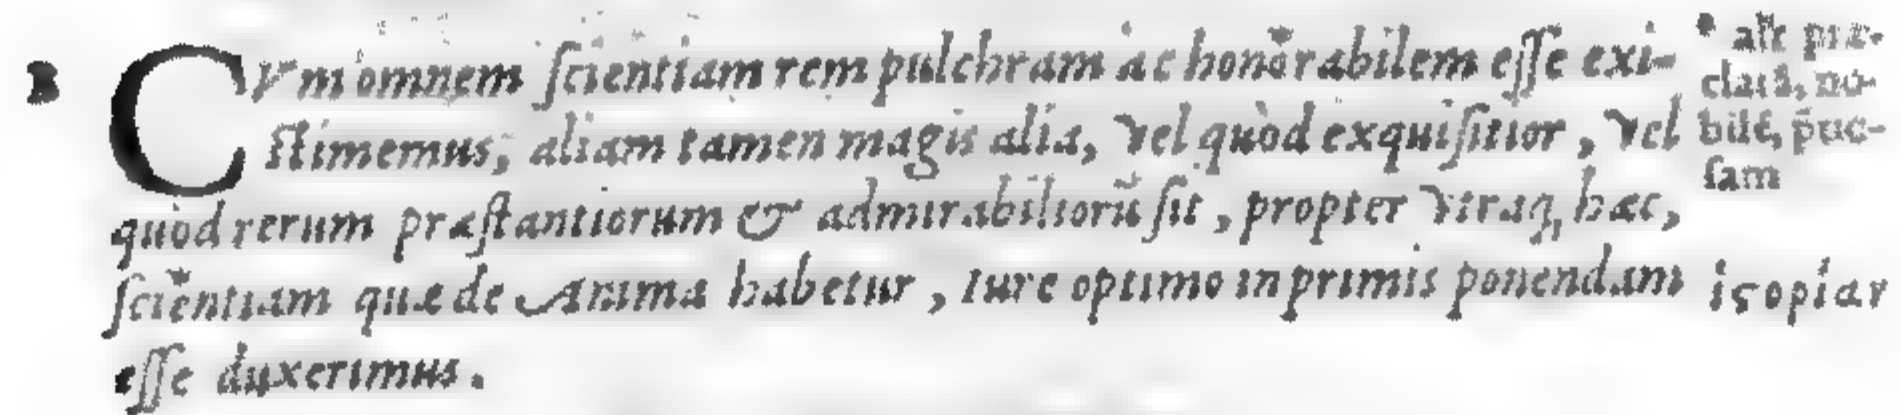 B
CVm omnem ſcientiam rem pulchram ac honorabilem eſſe exi-
ſtimemus, aliam tamen magis alia, vel quòd exquiſitior, vel
quòd rerum præſtantiorum & admirabiliorũ ſit, propter vtraq; hæc,
ſcientiam quæ de Anima habetur, iure optimo in primis ponendam
eſſe duxerimus.
* alĩr præ-
clarã, no-
bilẽ,
ſam
ἱςορίαν